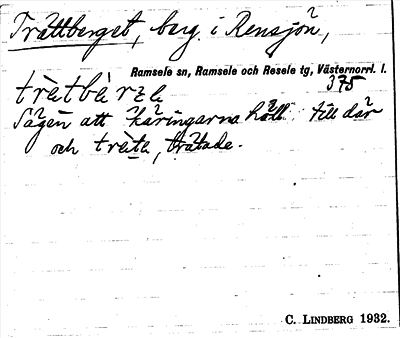 Trättberget, berg i Rensjön,
Ramsele sn, Ramsele och Resele tg, Västernorrl. l.
375
trätbärʒɐ
Sägen att käringarna höll till där
och träta, trätade.
C. LINDBERG 1932.